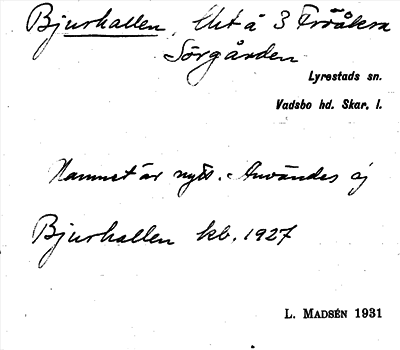 Bjurhallen, lht å 3 Fröåkra
Sörgården
Lyrestads sn.
Vadsbo hd. Skar. l.
Namnet är nytt. Användes ej
Bjurhallen kb. 1927
L. MADSÉN 1931